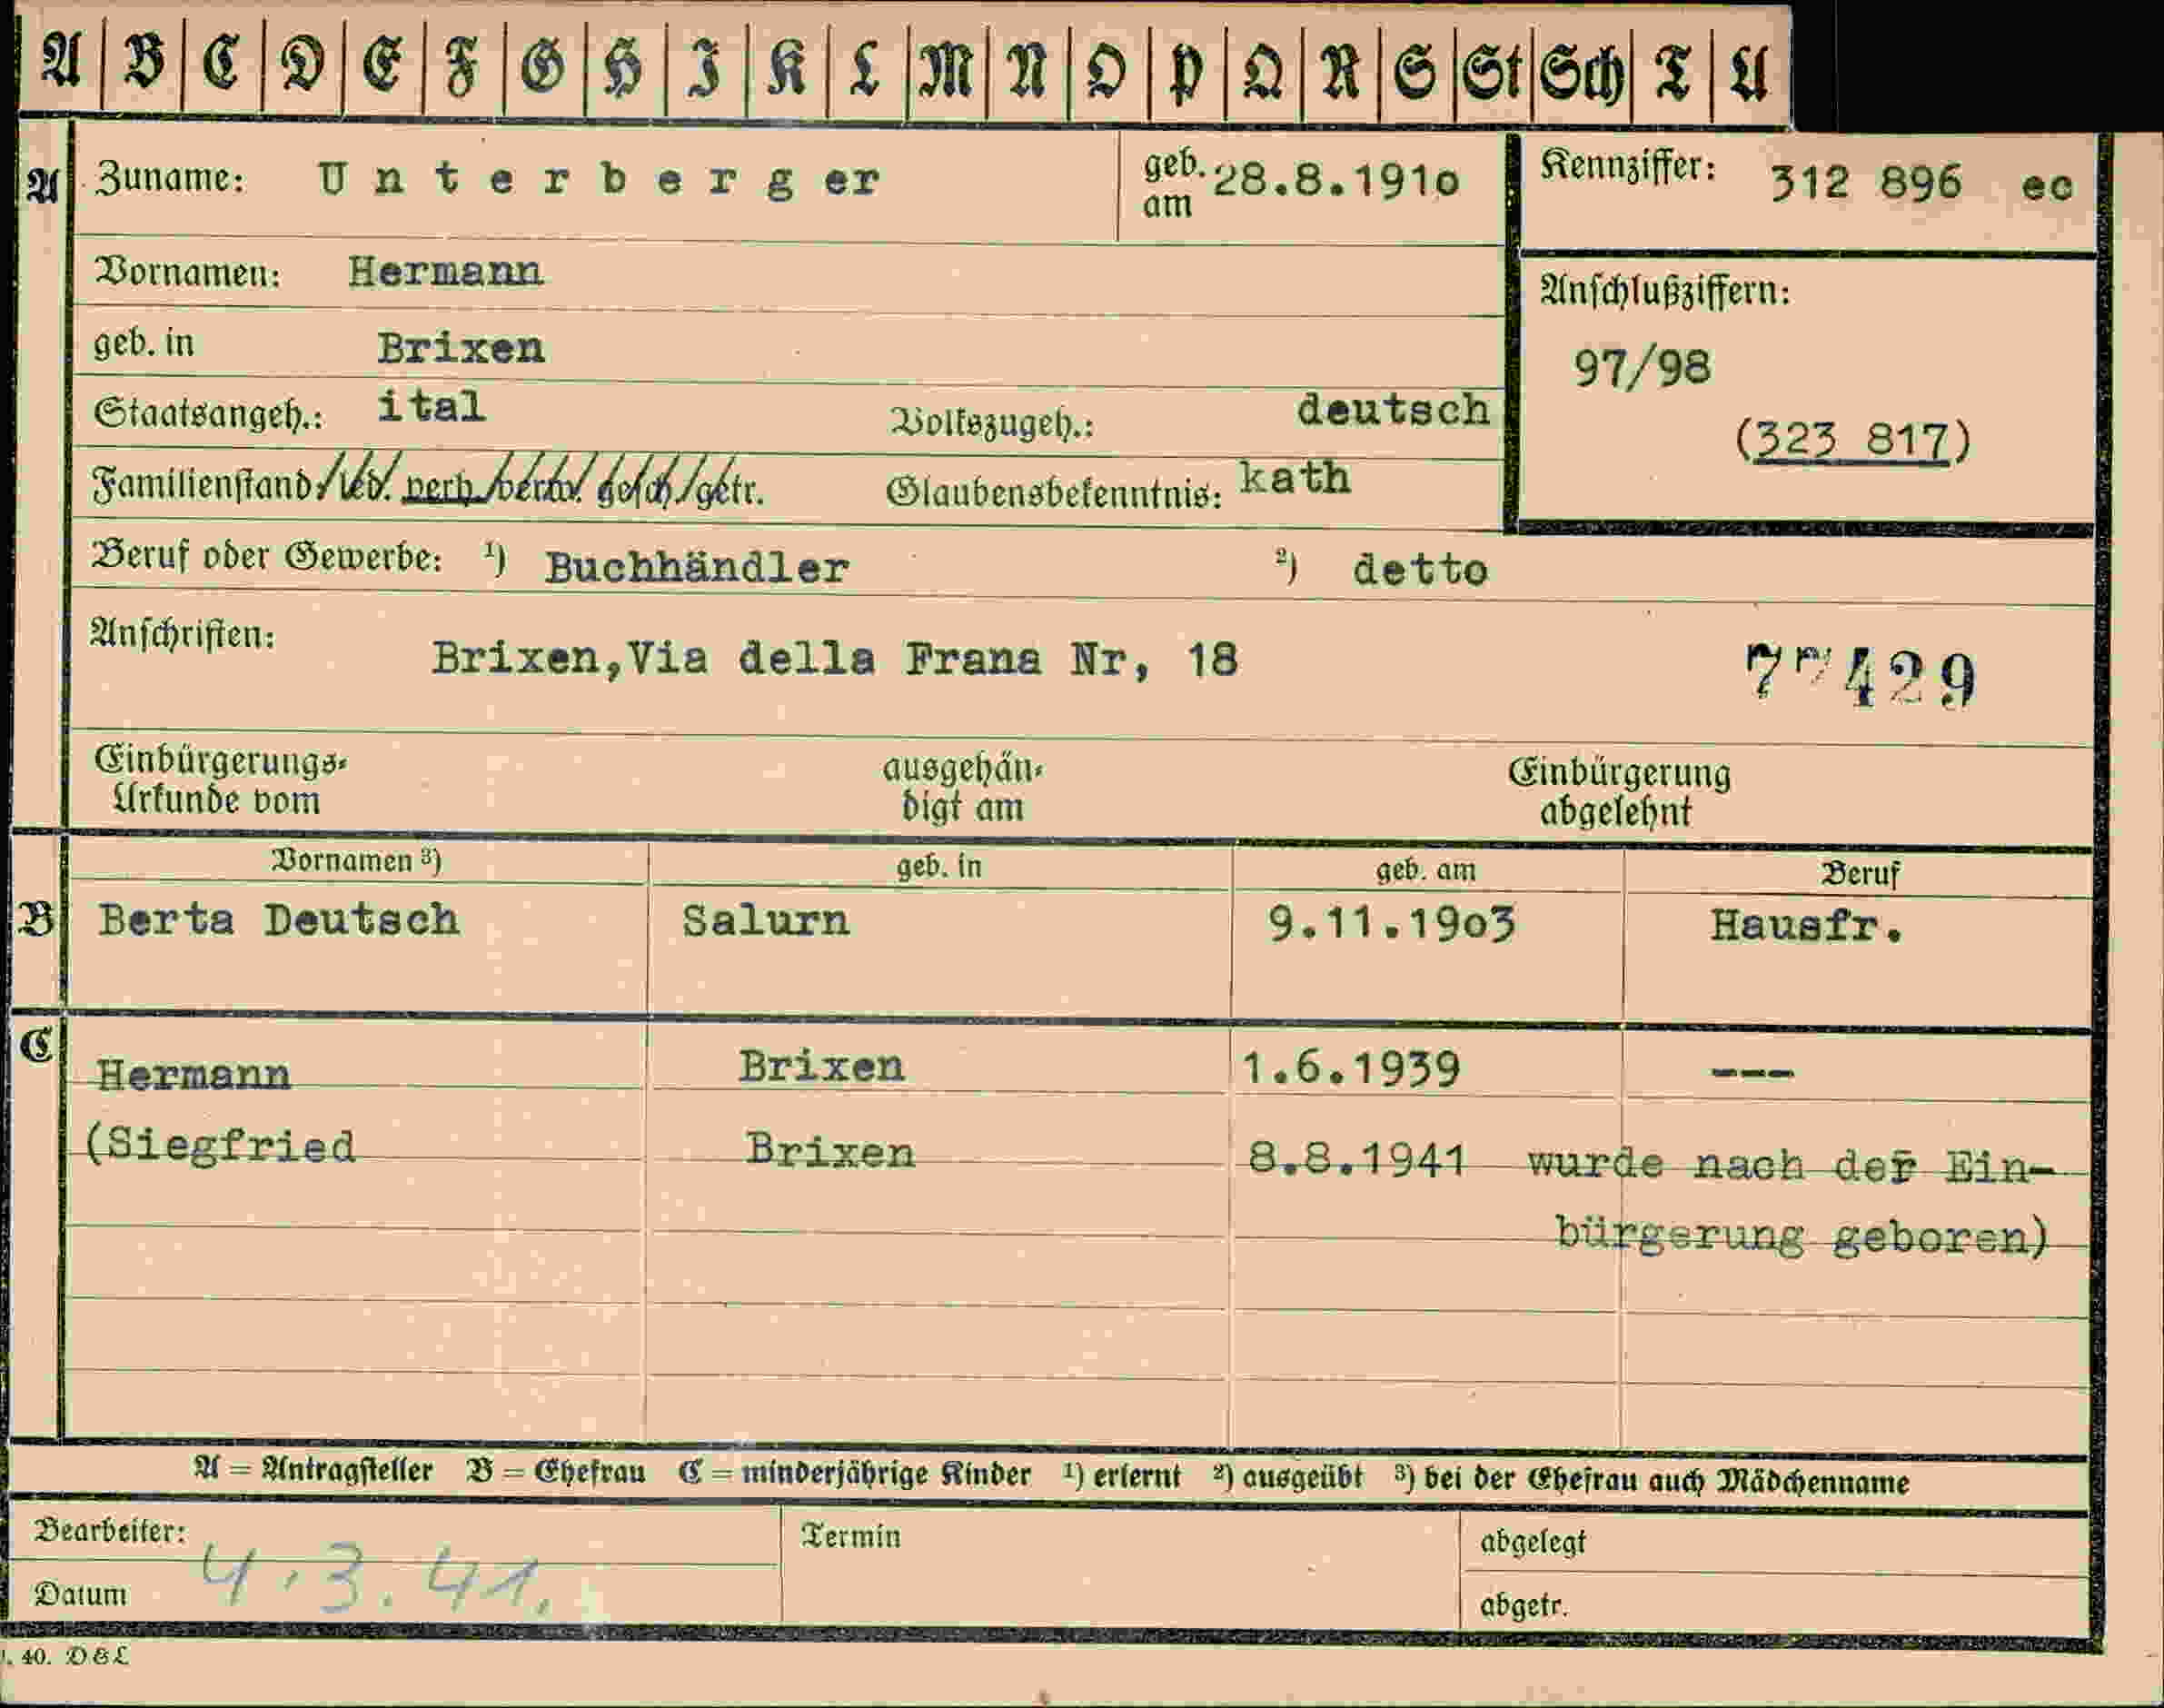 A B C D E F G H I K L M N O P Q R S St Sch T U
A Zuname: Unterberger geb. am 28.8.191o Kennziffer: 312 896 ec
Vornamen: Hermann
Anschlußziffern:
geb. in Brixen
97/98
Staatsangeh.: ital Volkszugeh.: deutsch
(323 817)
Familienstand: led. verh. verw. gesch. getr. Glaubensbekenntnis: kath
Beruf oder Gewerbe: ¹) Buchhändler ²) detto
Anschriften: Brixen,Via della Frana Nr, 18 77429
Einbürgerungs- ausgehän- Einbürgerung
Urkunde vom digt am abgelehnt
Vornamen ³) geb. in geb. am Beruf
B Berta Deutsch Salurn 9.11.19o3 Hausfr.
C Hermann Brixen 1.6.1939 ---
(Siegfried Brixen 8.8.1941 wurde nach der Ein-
bürgerung geboren)
A = Antragsteller B = Ehefrau C = minderjährige Kinder ¹) erlernt ²) ausgeübt ³) bei der Ehefrau auch Mädchenname
Bearbeiter: Termin abgelegt
4.3.41.
Datum abgetr.
40. D&L